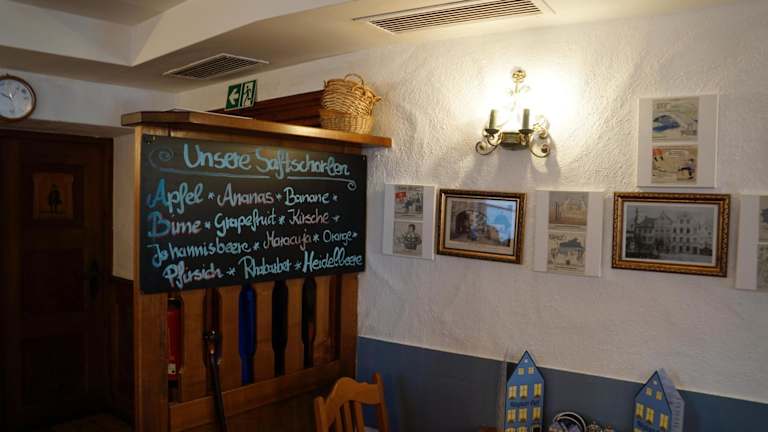 Unsere Saftschorlen
Apfel * Ananas * Banane *
Birne * Grapefruit * Kirsche *
Johannisbeere * Maracuja * Orange *
Pfirsich * Rhabarber * Heidelbeere